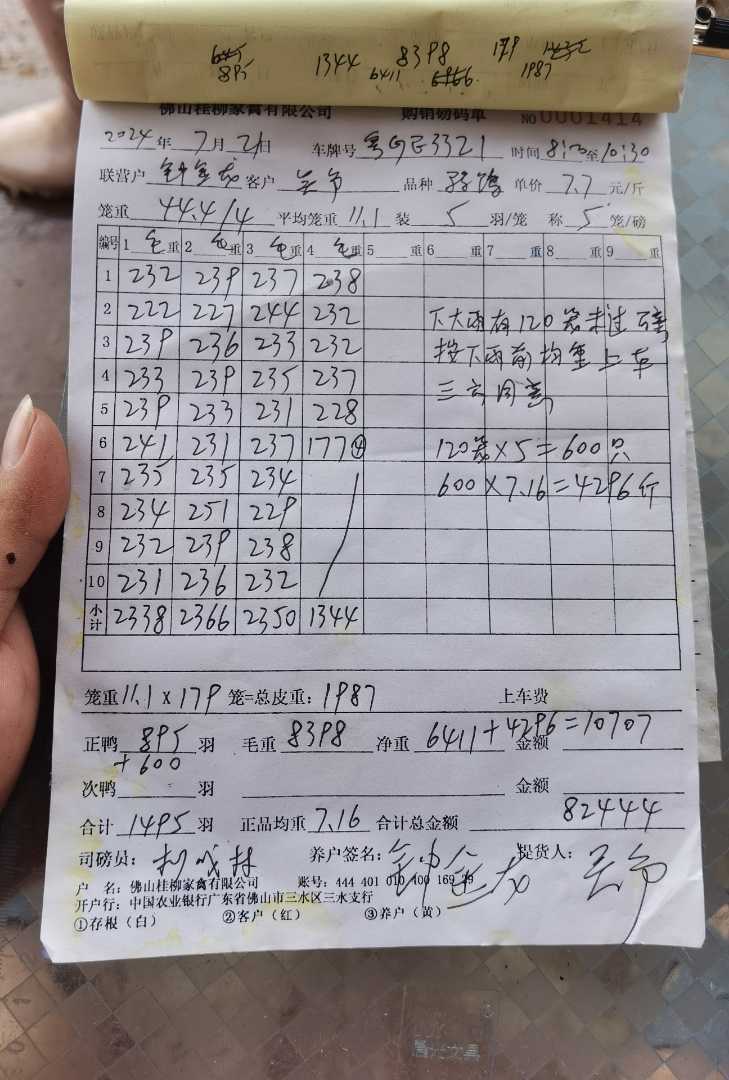 895 1344 8398 179
6411 1987
佛山桂柳家禽有限公司 购销磅码单 NO 0001414
2024年7月21日 车牌号 粤 E3321 时间 8: 至10:30
联营户 钟金 客户 品种 单价 7.7 元/斤
笼重 44.4/4 平均笼重 11.1 装 5 羽/笼 称 5 笼/磅
编号 1 毛重 2 毛重 3 毛重 4 毛重 5 重 6 重 7 重 8 重 9 重
1 232 239 237 238
2 222 227 244 232 下大雨有120笼未过磅
3 239 236 233 232 按下雨前均重上车
4 233 239 235 237 三方同意
5 239 233 231 228
6 241 231 237 177④ 120笼×5=600只
7 235 235 234 600×7.16=4296斤
8 234 251 229
9 232 239 238
10 231 236 232
小计 2338 2366 2350 1344
笼重 11.1 X 179 笼=总皮重: 1987 上车费
正鸭 895 羽 毛重 8398 净重 6411+4296=10707 金额
+600
次鸭 羽 金额
合计 1495 羽 正品均重 7.16 合计总金额 82444
司磅员: 养户签名: 钟金 提货人:
户 名: 佛山桂柳家禽有限公司 账号: 444 401 010 400 169 29
开户行: 中国农业银行广东省佛山市三水区三水支行
①存根(白) ②客户(红) ③养户(黄)